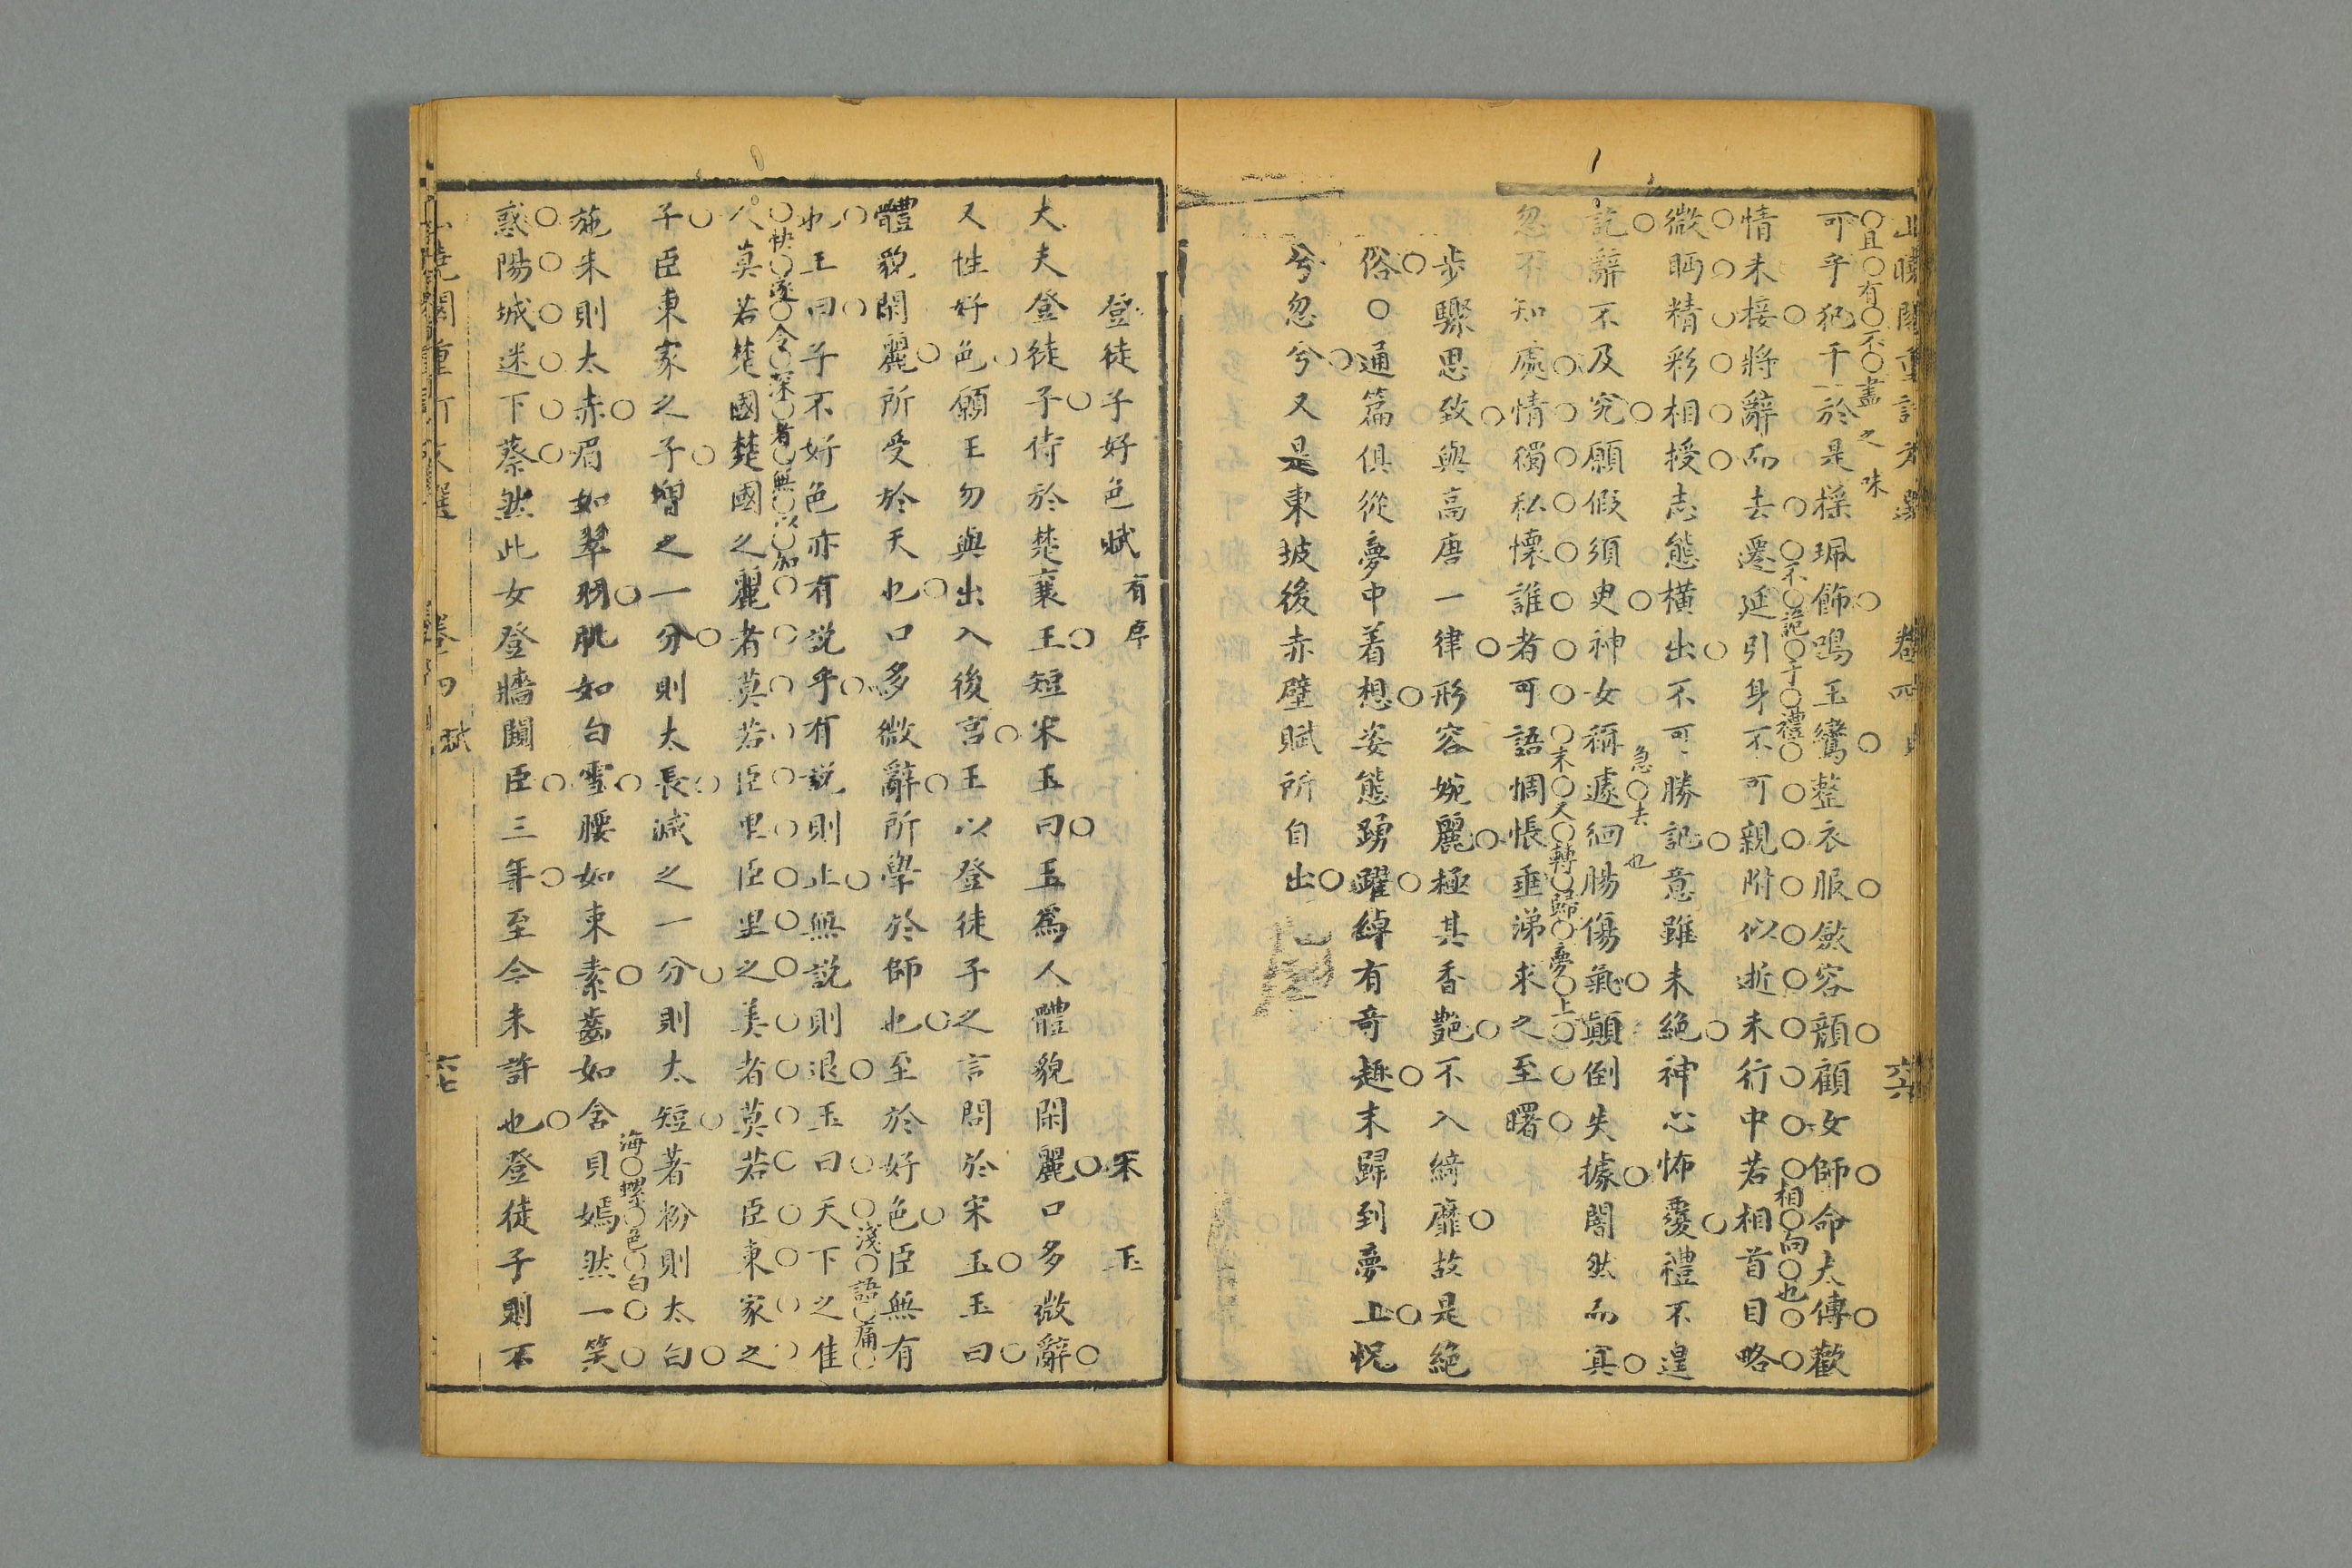 山曉閣重訂文選 卷四 賦 六六
可乎犯干於是搖珮飾鳴玉鸞整衣服斂容顏顧女師命太傅歡
且有不盡之味
情未接將辭而去遷延引身不可親附似逝未行中若相首目略
不説于禮
相向也
微眄精彩相授志態橫出不可勝記意雖未絶神心怖覆禮不遑
訖辭不及究願假須臾神女稱遽徊腸傷氣顛倒失據闇然而冥
急去也
忽不知處情獨私懷誰者可語惆悵垂涕求之至曙
末又轉歸夢上
步驟思致與高唐一律形容婉麗極其香艷不入綺靡故是絶
俗○通篇俱從夢中着想姿態踴躍綽有奇趣末歸到夢上怳
兮忽兮又是東坡後赤壁賦所自出
登徒子好色賦 有序 宋玉
大夫登徒子侍於楚襄王短宋玉曰玉爲人體貌閑麗口多微辭
又性好色願王勿與出入後宮王以登徒子之言問於宋玉玉曰
體貌閑麗所受於天也口多微辭所學於師也至於好色臣無有
也王曰子不好色亦有説乎有説則止無説則退玉曰天下之佳
淺語痛
人莫若楚國楚國之麗者莫若臣里臣里之美者莫若臣東家之
快遂令深者無以加
子臣東家之子增之一分則太長減之一分則太短著粉則太白
施朱則太赤眉如翠羽肌如白雪腰如束素齒如含貝嫣然一笑
海螺色白
惑陽城迷下蔡然此女登牆闚臣三年至今未許也登徒子則不
山曉閣重訂文選 卷四 賦 六七